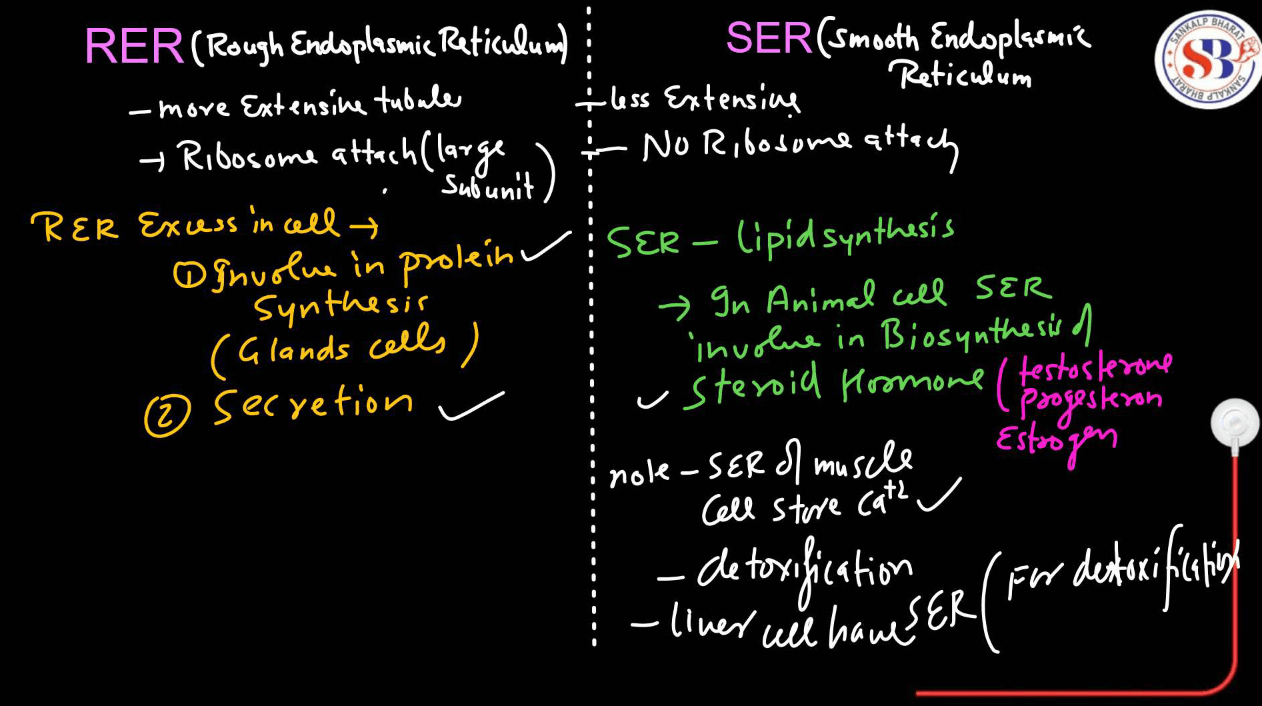 RER (Rough Endoplasmic Reticulum)
- more Extensive tubule
→ Ribosome attach (large
subunit)
RER Excess in cell →
① Involve in protein
Synthesis
(Glands cells)
② Secretion
SER (Smooth Endoplasmic
Reticulum
- less Extensive
- NO Ribosome attach
SER - lipid synthesis
→ In Animal cell SER
involve in Biosynthesis of
Steroid Hormone (testosterone
progesteron
Estrogen
note - SER of muscle
Cell store Ca+2
- detoxification
- liver cell have SER (For detoxification
SANKALP BHARAT
SB
SANKALP BHARAT